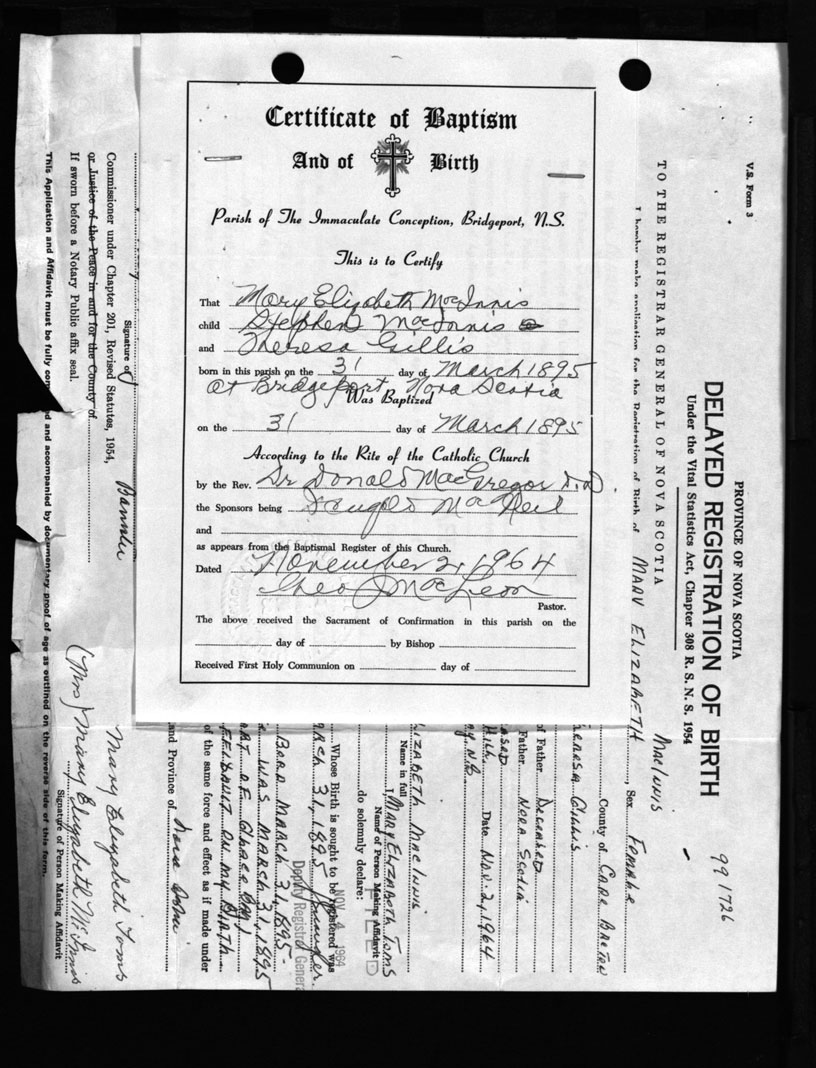 Certificate of Baptism
And of Birth
Parish of The Immaculate Conception, Bridgeport, N.S.
This is to Certify
That Mary Elizabeth MacInnis
child Stephen MacInnis
and Theresa Gillis
born in this parish on the 31 day of March 1895
at Bridgeport, Nova Scotia
Was Baptized
on the 31 day of March 1895
According to the Rite of the Catholic Church
by the Rev. Dr Donald MacGregor D.D
the Sponsors being Dougald McNeil
and
as appears from the Baptismal Register of this Church.
Dated November 2, 1964
Geo J MacLean
Pastor.
The above received the Sacrament of Confirmation in this parish on the
day of by Bishop
Received First Holy Communion on day of
V.S. Form 3
991726
PROVINCE OF NOVA SCOTIA
DELAYED REGISTRATION OF BIRTH
Under the Vital Statistics Act, Chapter 308 R. S. N. S. 1954
TO THE REGISTRAR GENERAL OF NOVA SCOTIA
I hereby make application for the Registration of Birth of MARY ELIZABETH MacINNIS, Sex FEMALE
County of CAPE BRETON
THERESA GILLIS
of Father DECEASED
Father NOVA SCOTIA
Date NOV. 2, 1964
ELIZABETH MACINNIS
Name in full
I, MARY ELIZABETH TOMS
Name of Person Making Affidavit
do solemnly declare:
FILED
NOV 1964
Deputy Registrar General
Whose Birth is sought to be registered was
MARCH 31, 1895
BORN MARCH 31, 1895.
WAS MARCH 31, 1895
PART OF GLACE BAY)
ON MY BIRTH.
of the same force and effect as if made under
and Province of Nova Scotia
Mary Elizabeth Toms
(Mrs) Mary Elizabeth
Signature of Person Making Affidavit
Signature of
Commissioner under Chapter 201, Revised Statutes, 1954,
or Justice of the Peace in and for the County of
If sworn before a Notary Public affix seal.
This Application and Affidavit must be fully and accompanied by documentary proof of age as outlined on the reverse side of this form.